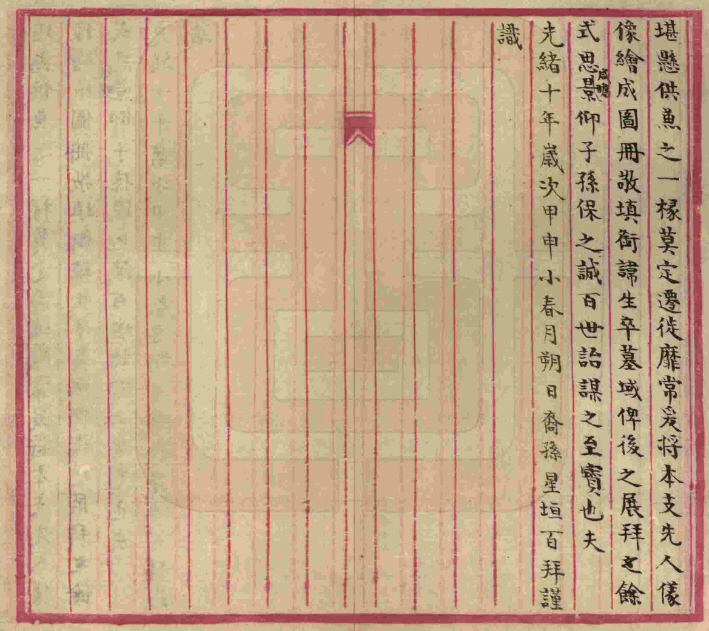 堪懸供兼之一椽莫定遷徙靡常爰将本支先人儀
像繪成圖冊敬填銜諱生卒墓域俾後之展拜之餘
式思景咸曉仰子孫保之誠百世詒謀之至寶也夫
光緒十年歲次甲申小春月朔日裔孫星垣百拜謹
識